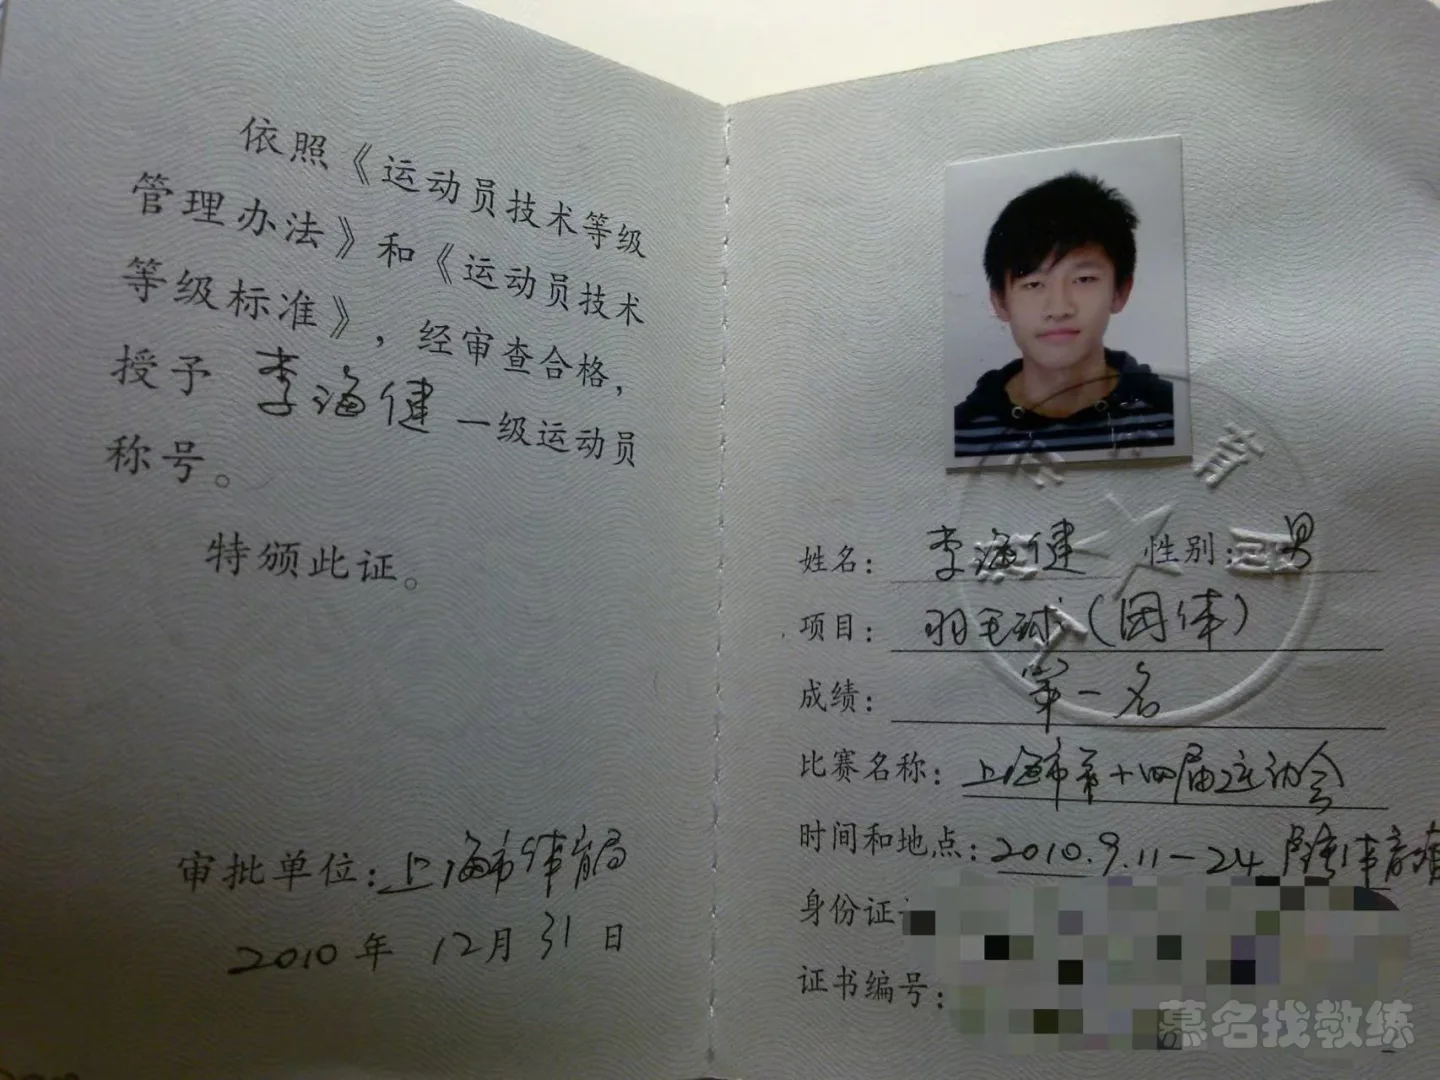 依照《运动员技术等级
管理办法》和《运动员技术
等级标准》，经审查合格，
授予 李海健 一级运动员
称号。
特颁此证。
审批单位：上海市体育局
2010年 12月31日
姓名： 李海健 性别：男
项目： 羽毛球（团体）
成绩： 第一名
比赛名称：上海市第十四届运动会
时间和地点：2010.9.11-24 卢湾体育馆
身份证
证书编号：
慕名找教练